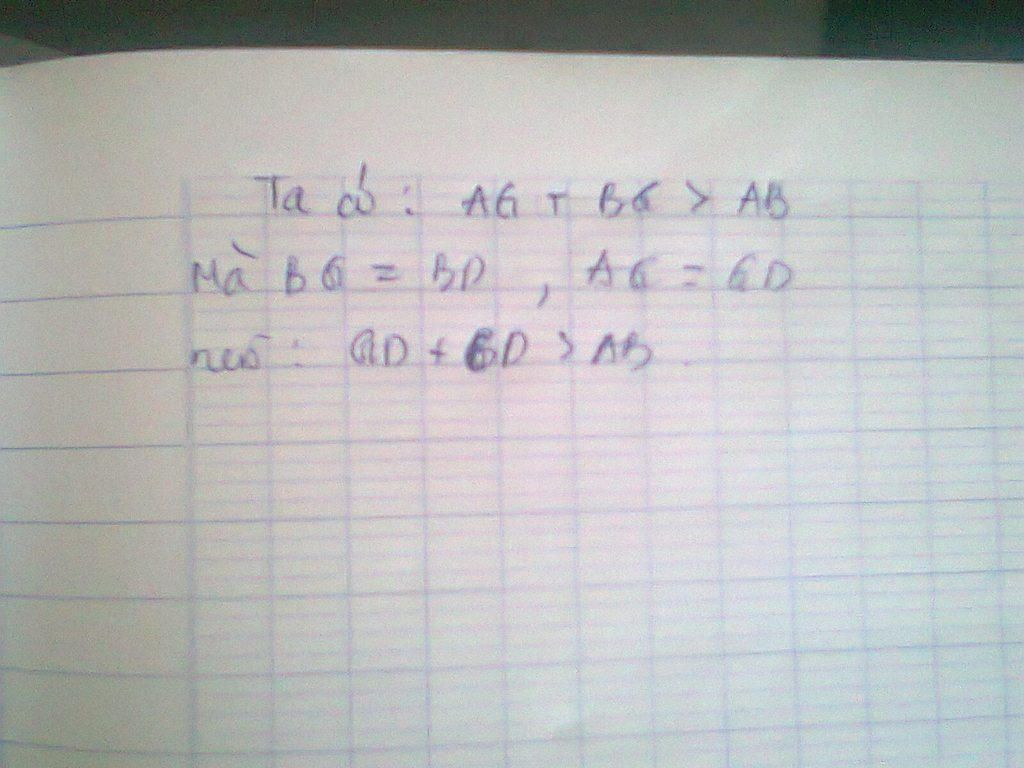 Ta có : AG + BG > AB
Mà BG = BD , AG = GD
nên : GD + BD > AB .